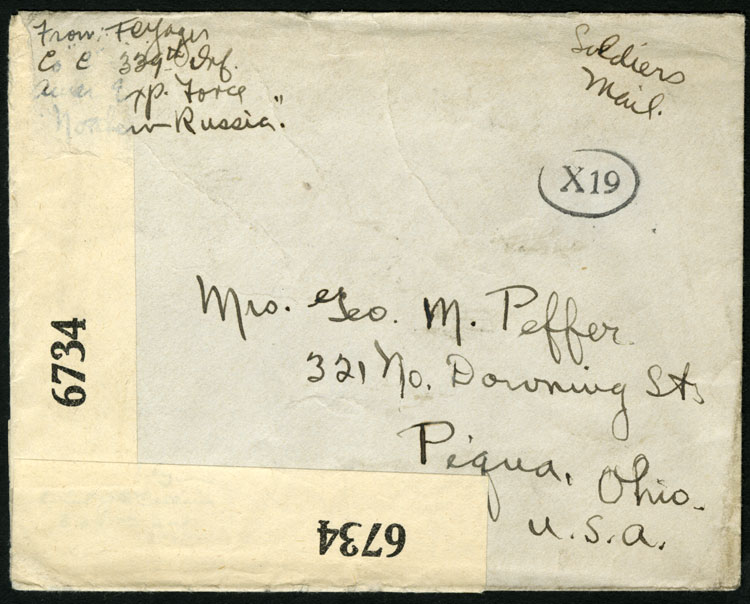 From: F. C. Yager
Co "C" 339th Inf.
Amer Exp. Force
Northern Russia."
Soldiers
Mail.
X19
Mrs. Geo. M. Peffer.
321 No. Downing St.
Piqua, Ohio.
U.S.A.
6734
6734